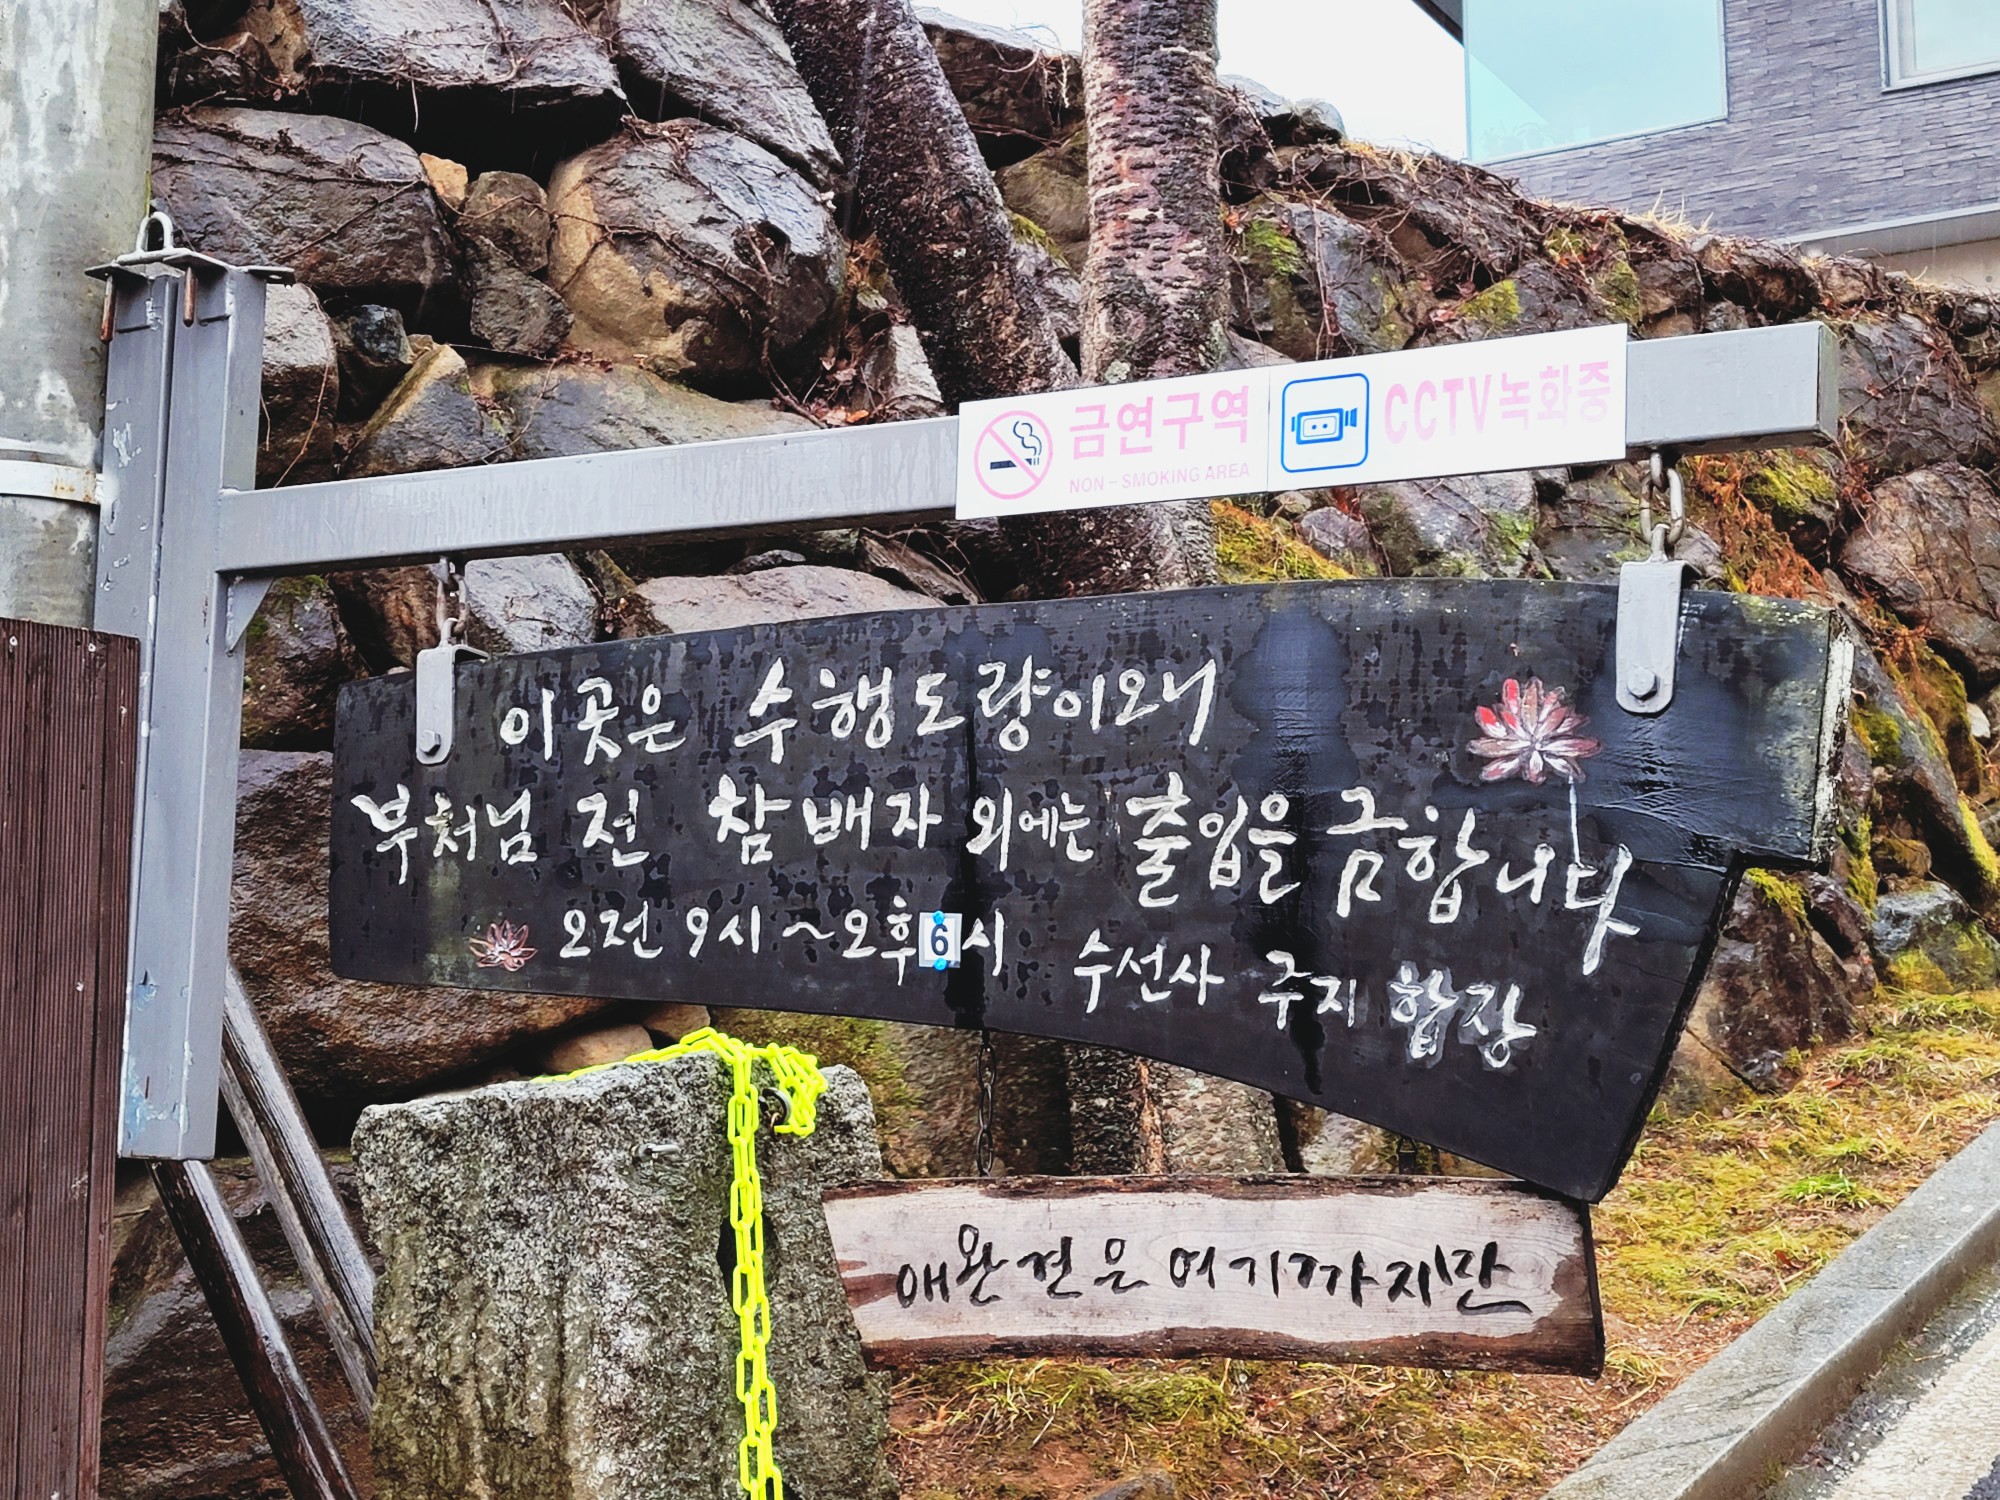 금연구역
NON-SMOKING AREA
CCTV녹화중
이곳은 수행도량이오니
부처님 전 참배자 외에는 출입을 금합니다
오전 9시~오후6시
수선사 주지 합장
애완견은 여기까지만